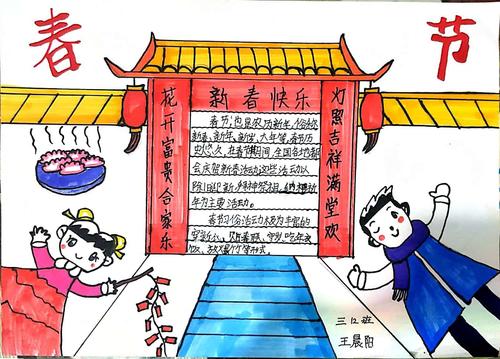 春节
新春快乐
花开富贵合家乐
灯照吉祥满堂欢
春节,也是农历新年,俗称
新春、新年、新岁、大年等,春节历
史悠久,在春节期间,全国各地都
会庆贺新春活动这些活动以
除旧迎新
年为主要活动。
春节习俗活动极为丰富的
贴春联、守岁、吃年夜
饭、放爆竹等形式。
三12班
王晨阳